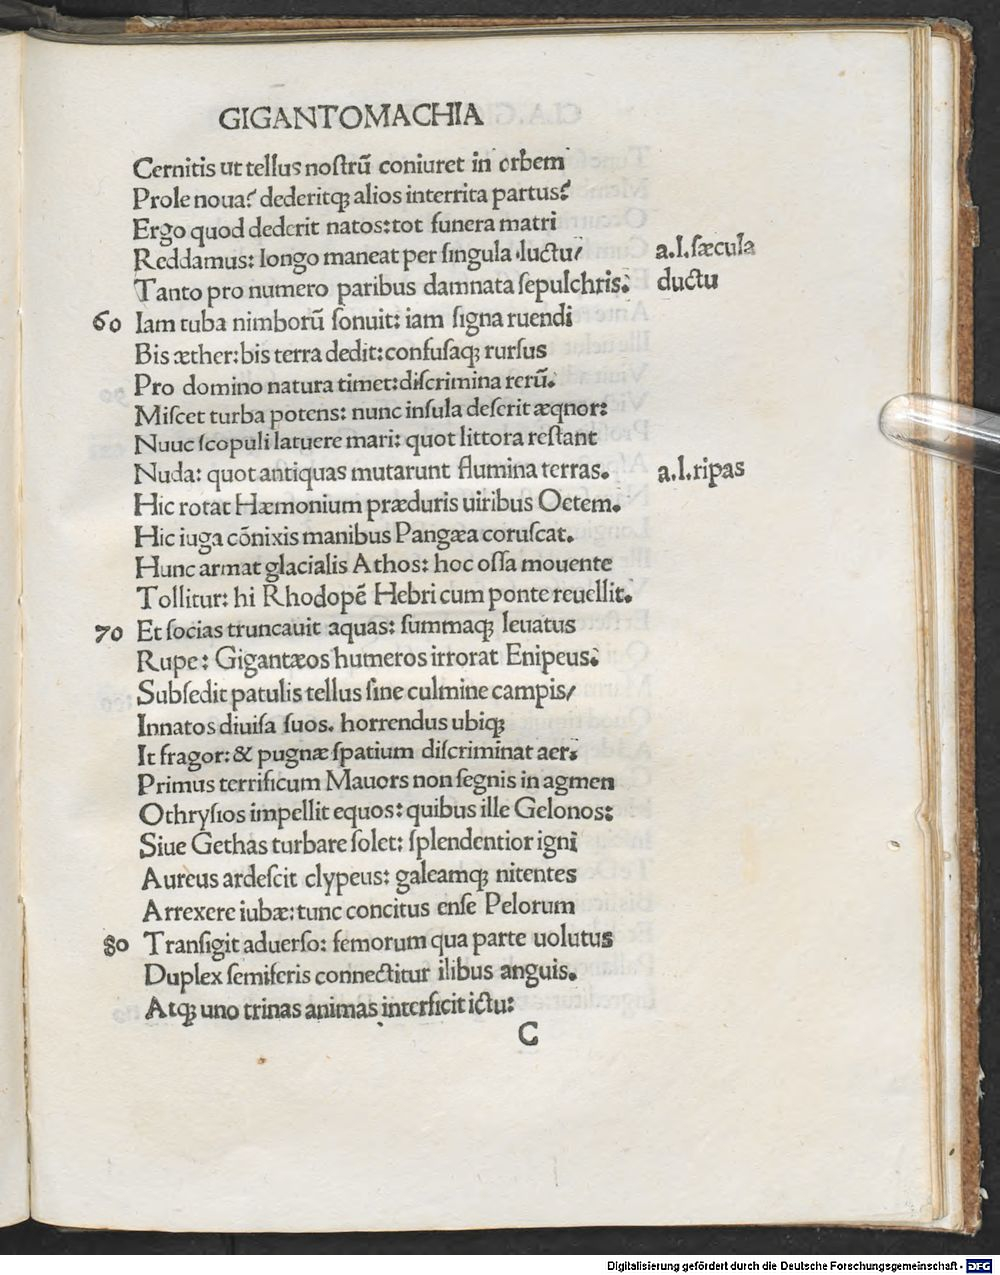 GIGANTOMACHIA
Cernitis ut tellus noſtrũ coniuret in orbem
Prole noua? dederitqꝫ alios interrita partus?
Ergo quod dederit natos: tot funera matri
Reddamus: longo maneat per ſingula luctu/ a.l.ſæcula
Tanto pro numero paribus damnata ſepulchris: ductu
60 Iam tuba nimborũ ſonuit: iam ſigna ruendi
Bis æther: bis terra dedit: confuſaqꝫ rurſus
Pro domino natura timet: diſcrimina rerũ.
Miſcet turba potens: nunc inſula deſerit æqnor:
Nuuc ſcopuli latuere mari: quot littora reſtant
Nuda: quot antiquas mutarunt flumina terras. a.l.ripas
Hic rotat Hæmonium præduris uiribus Oetem.
Hic iuga cõnixis manibus Pangæa coruſcat.
Hunc armat glacialis Athos: hoc oſſa mouente
Tollitur: hi Rhodopẽ Hebri cum ponte reuellit.
70 Et ſocias truncauit aquas: ſummaqꝫ leuatus
Rupe: Gigantæos humeros irrorat Enipeus:
Subſedit patulis tellus ſine culmine campis/
Innatos diuiſa ſuos. horrendus ubiqꝫ
It fragor: & pugnæ ſpatium diſcriminat aer:
Primus terrificum Mauors non ſegnis in agmen
Othryſios impellit equos: quibus ille Gelonos:
Siue Gethas turbare ſolet: ſplendentior igni
Aureus ardeſcit clypeus: galeamqꝫ nitentes
Arrexere iubæ: tunc concitus enſe Pelorum
80 Tranſigit aduerſo: femorum qua parte uolutus
Duplex ſemiferis connectitur ilibus anguis.
Atqꝫ uno trinas animas interficit ictu:
C
Digitalisierung gefördert durch die Deutsche Forschungsgemeinschaft - DFG